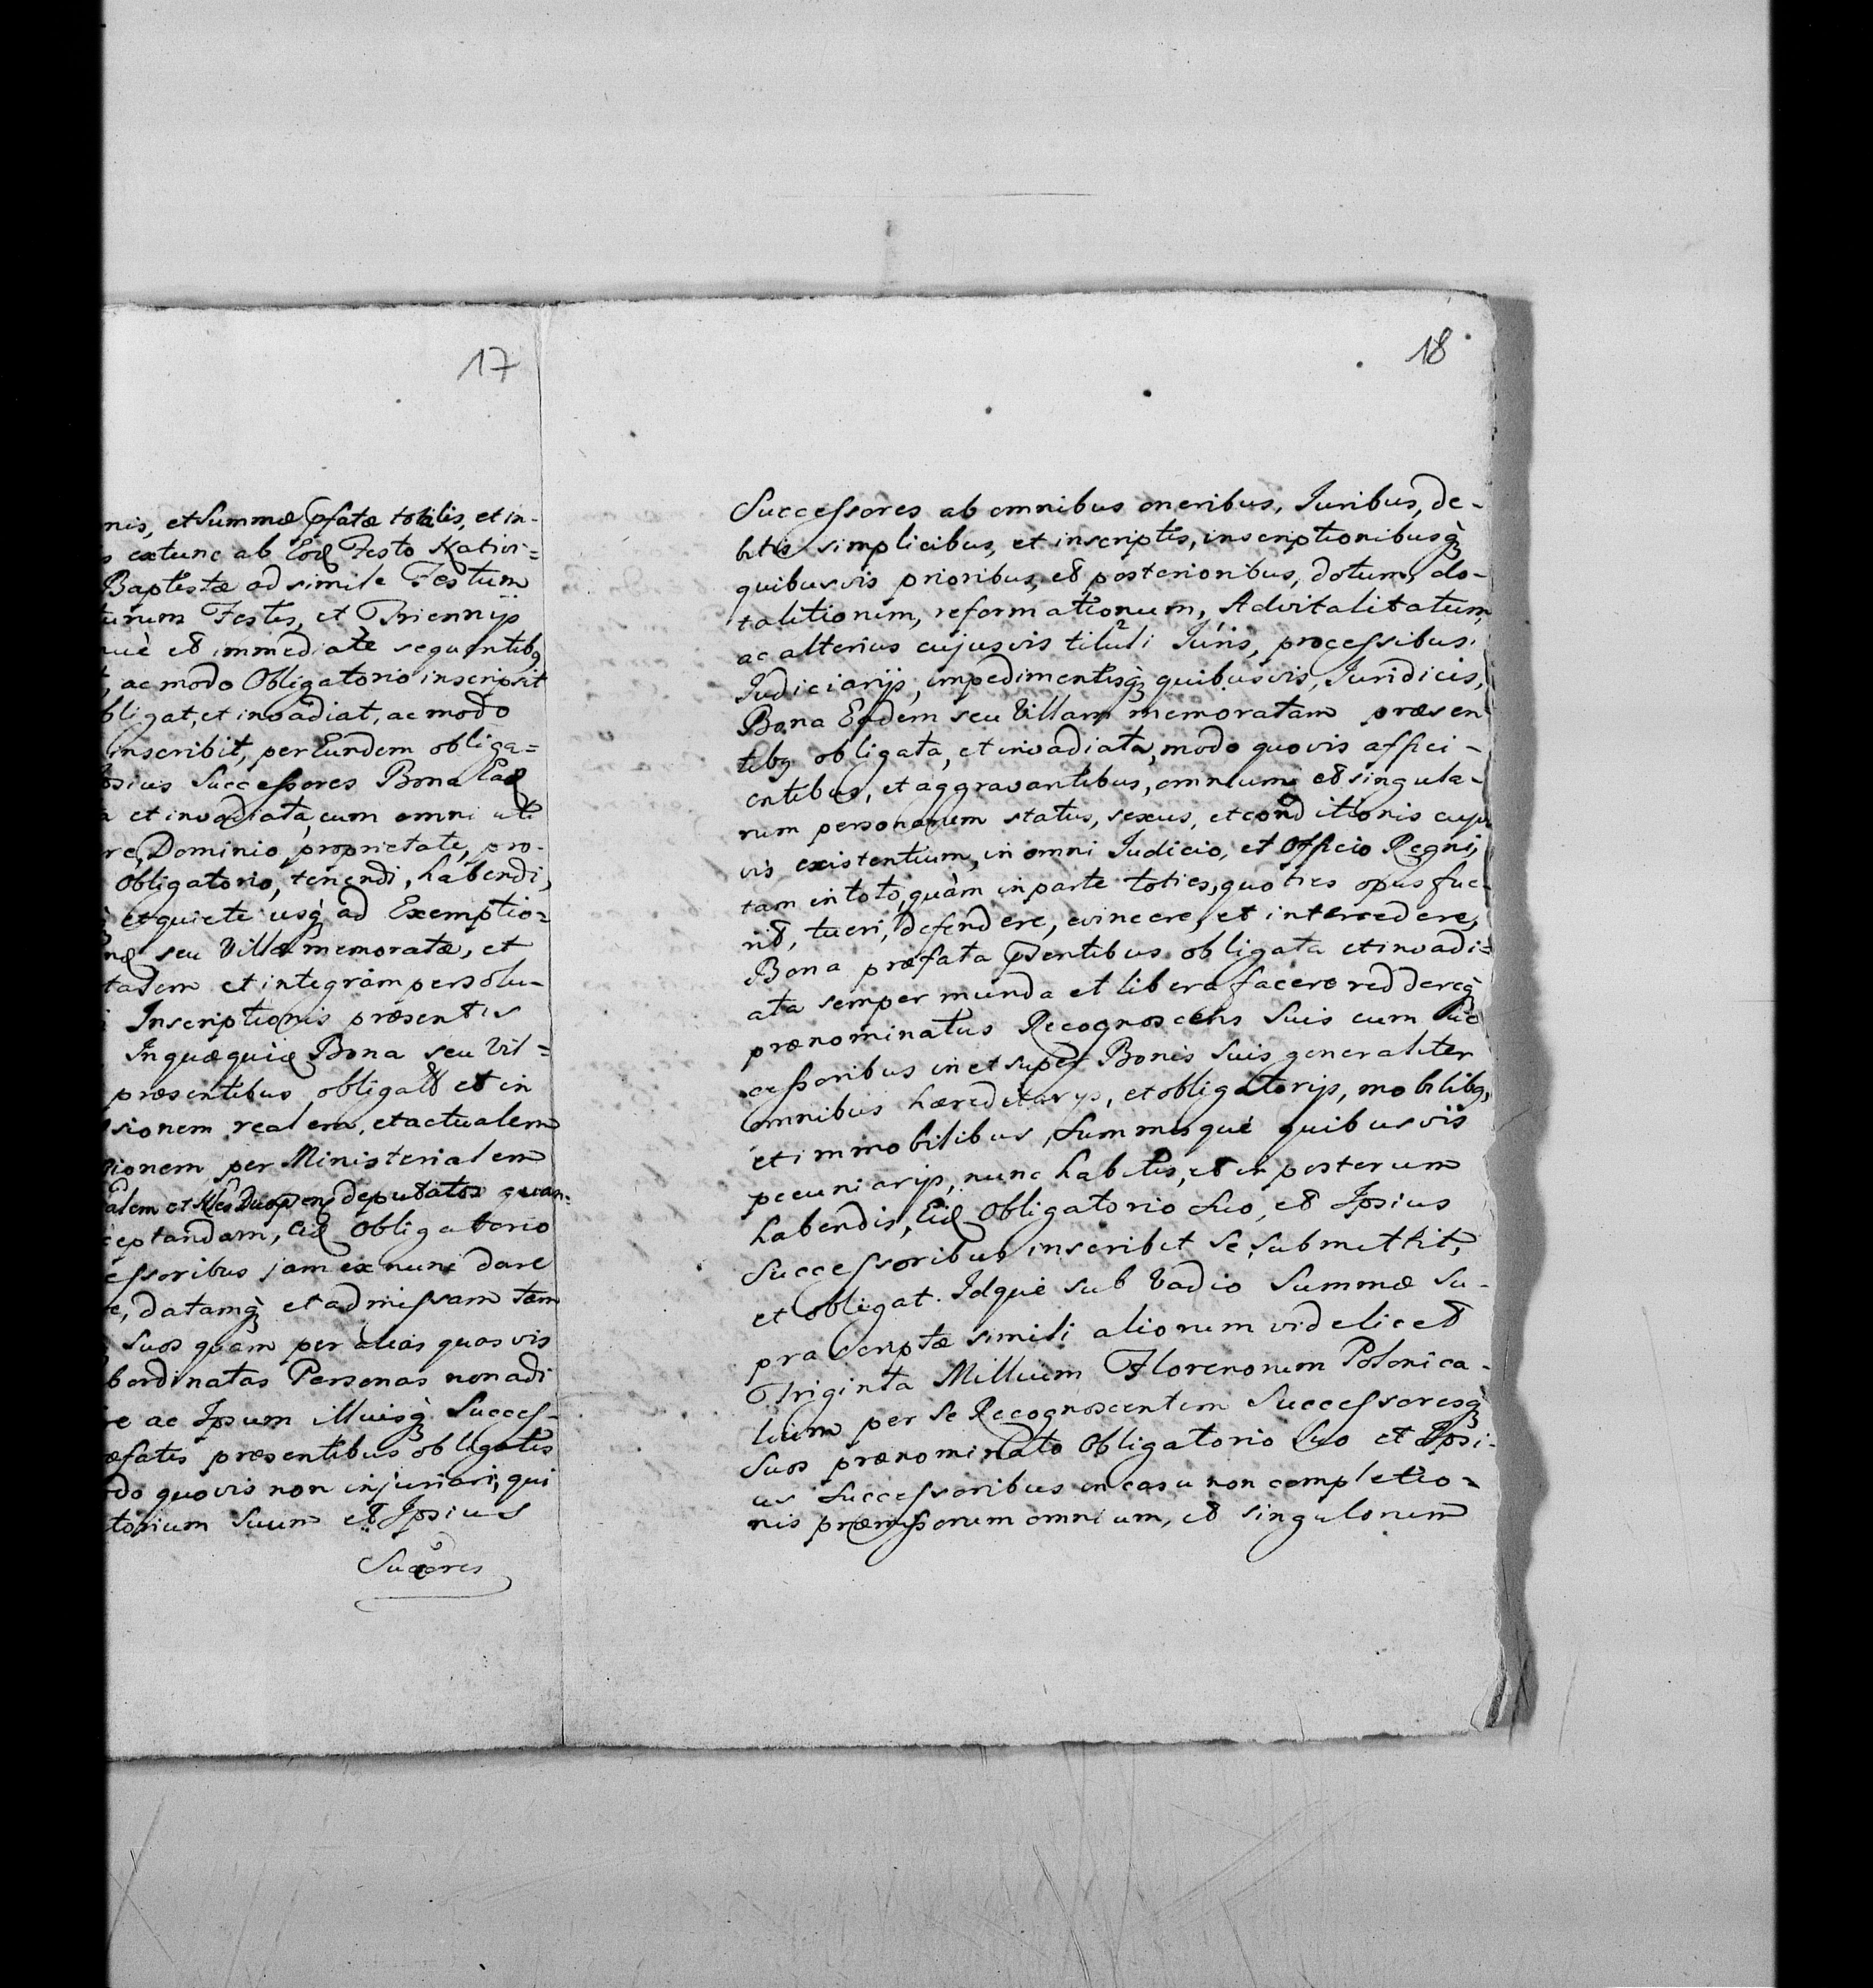 17
nis, et Summæ pfatæ totalis, et in-
s extunc ab Eod Festo Nativi=
Baptistæ ad simile Festum
turum Festis, et Triennijs
què et immediatè sequentibq
t, ac modo Obligatorio inscripsit
bligat, et invadiat, ac modo
inscribit, per Eundem obliga=
psius Successores Bona Ead
a et invadiata, cum omni uti
re, Dominio, proprietate, pro-
Obligatorio, tenendi, habendi,
et quiete usq ad Exemptio=
seu Villæ memoratæ, et
tatem et integram persolu-
i Inscriptionis præsentis
In quæquid Bona seu Vil=
præsentibus obligata et in
sionem realem, et actualem
tionem per Ministerialem
alem et Nles Duos pen deputatos quan-
ceptandam, Eid Obligatorio
essoribus jam ex nunc dare
e, datamq et admissam tam
Suos quam per alias quasvis
bordinatas Personas non adi
re ac Ipsum illiusq Succes-
æfatis præsentibus obligatis
do quovis non injuriari, qui
torium Suum et Ipsius
Succores
18
Successores ab omnibus oneribus, Juribus, de-
bitis simplicibus, et inscriptis, inscriptionibusq
quibusvis prioribus, et posterioribus, dotum, do-
talitionum, reformationum, Advitalitatum,
ac alterius cujusvis tituli Juris, processibus
Judiciarijs, impedimentisq quibusvis, Juridicis,
Bona Eadem seu Villam memoratam præsen
tibq obligata, et invadiata, modo quovis affici-
entibus, et aggravantibus, omnium et singula-
rum personarum status, sexus, et conditionis cujus
vis existentium, in omni Judicio, et Officio Regni,
tam in toto, quàm in parte toties, quoties opus fue-
rit, tueri, defendere, evincere, et intercedere,
Bona præfata psentibus obligata et invadi=
ata semper munda et libera facere reddereq
prænominatus Recognoscens Suis cum Suc
cessoribus in et super Bonis Suis generaliter
omnibus hæreditarijs, et obligatorijs, mobilibq,
et immobilibus, Summisque quibusvis
pecuniarijs, nunc habitis, et in posterum
habendis, Eid Obligatorio Suo, et Ipsius
Successoribus inscribit se, submittit,
et obligat. Idque sub Vadio Summæ Su-
prascriptæ simili aliorum videlicet
Triginta Millium Florenorum Polonica-
lium per Se Recognoscentem Successoresq
Suos prænominato Obligatorio Suo et Ipsi-
us Successoribus in casu non completio=
nis præmissorum omnium, et singulorum